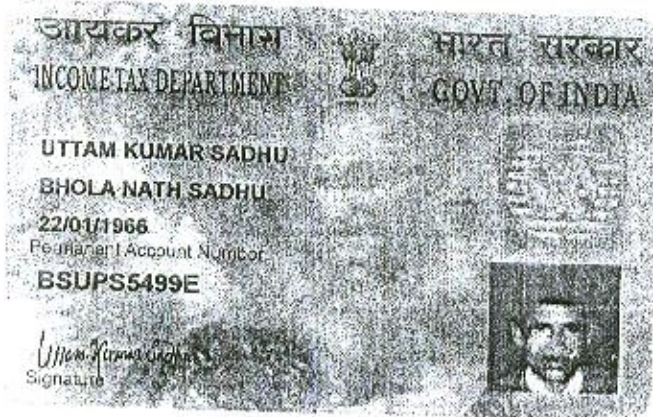 आयकर विभाग
भारत सरकार
INCOME TAX DEPARTMENT
GOVT. OF INDIA
UTTAM KUMAR SADHU
BHOLA NATH SADHU
22/01/1966
Permanent Account Number
BSUPS5499E
Uttam Kumar Sadhu
Signature